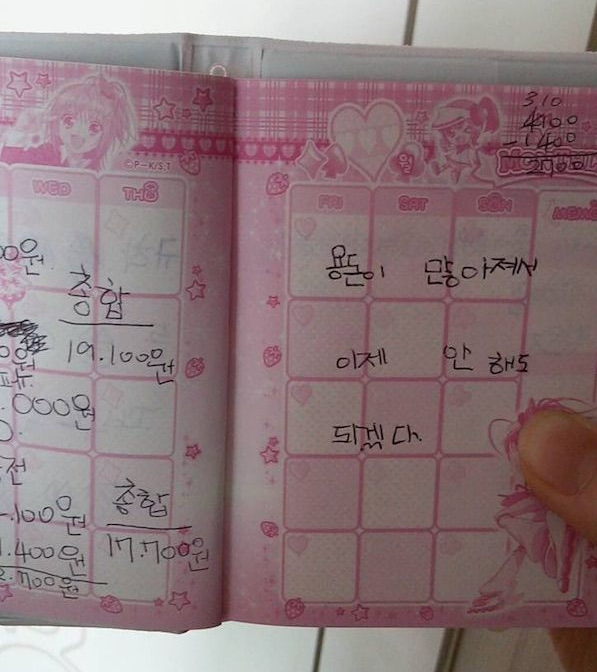 ©P-K/S.T
WED THU
00원
종합
19.100원
.000원
전
.100원
종합
1.400원
17.700원
2.700원
310
4100
-1400
2700
월
FRI SAT SUN MEMO
용돈이 많아져서
이제 안 해도
되겠다.